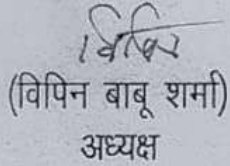 विपिन
(विपिन बाबू शर्मा)
अध्यक्ष